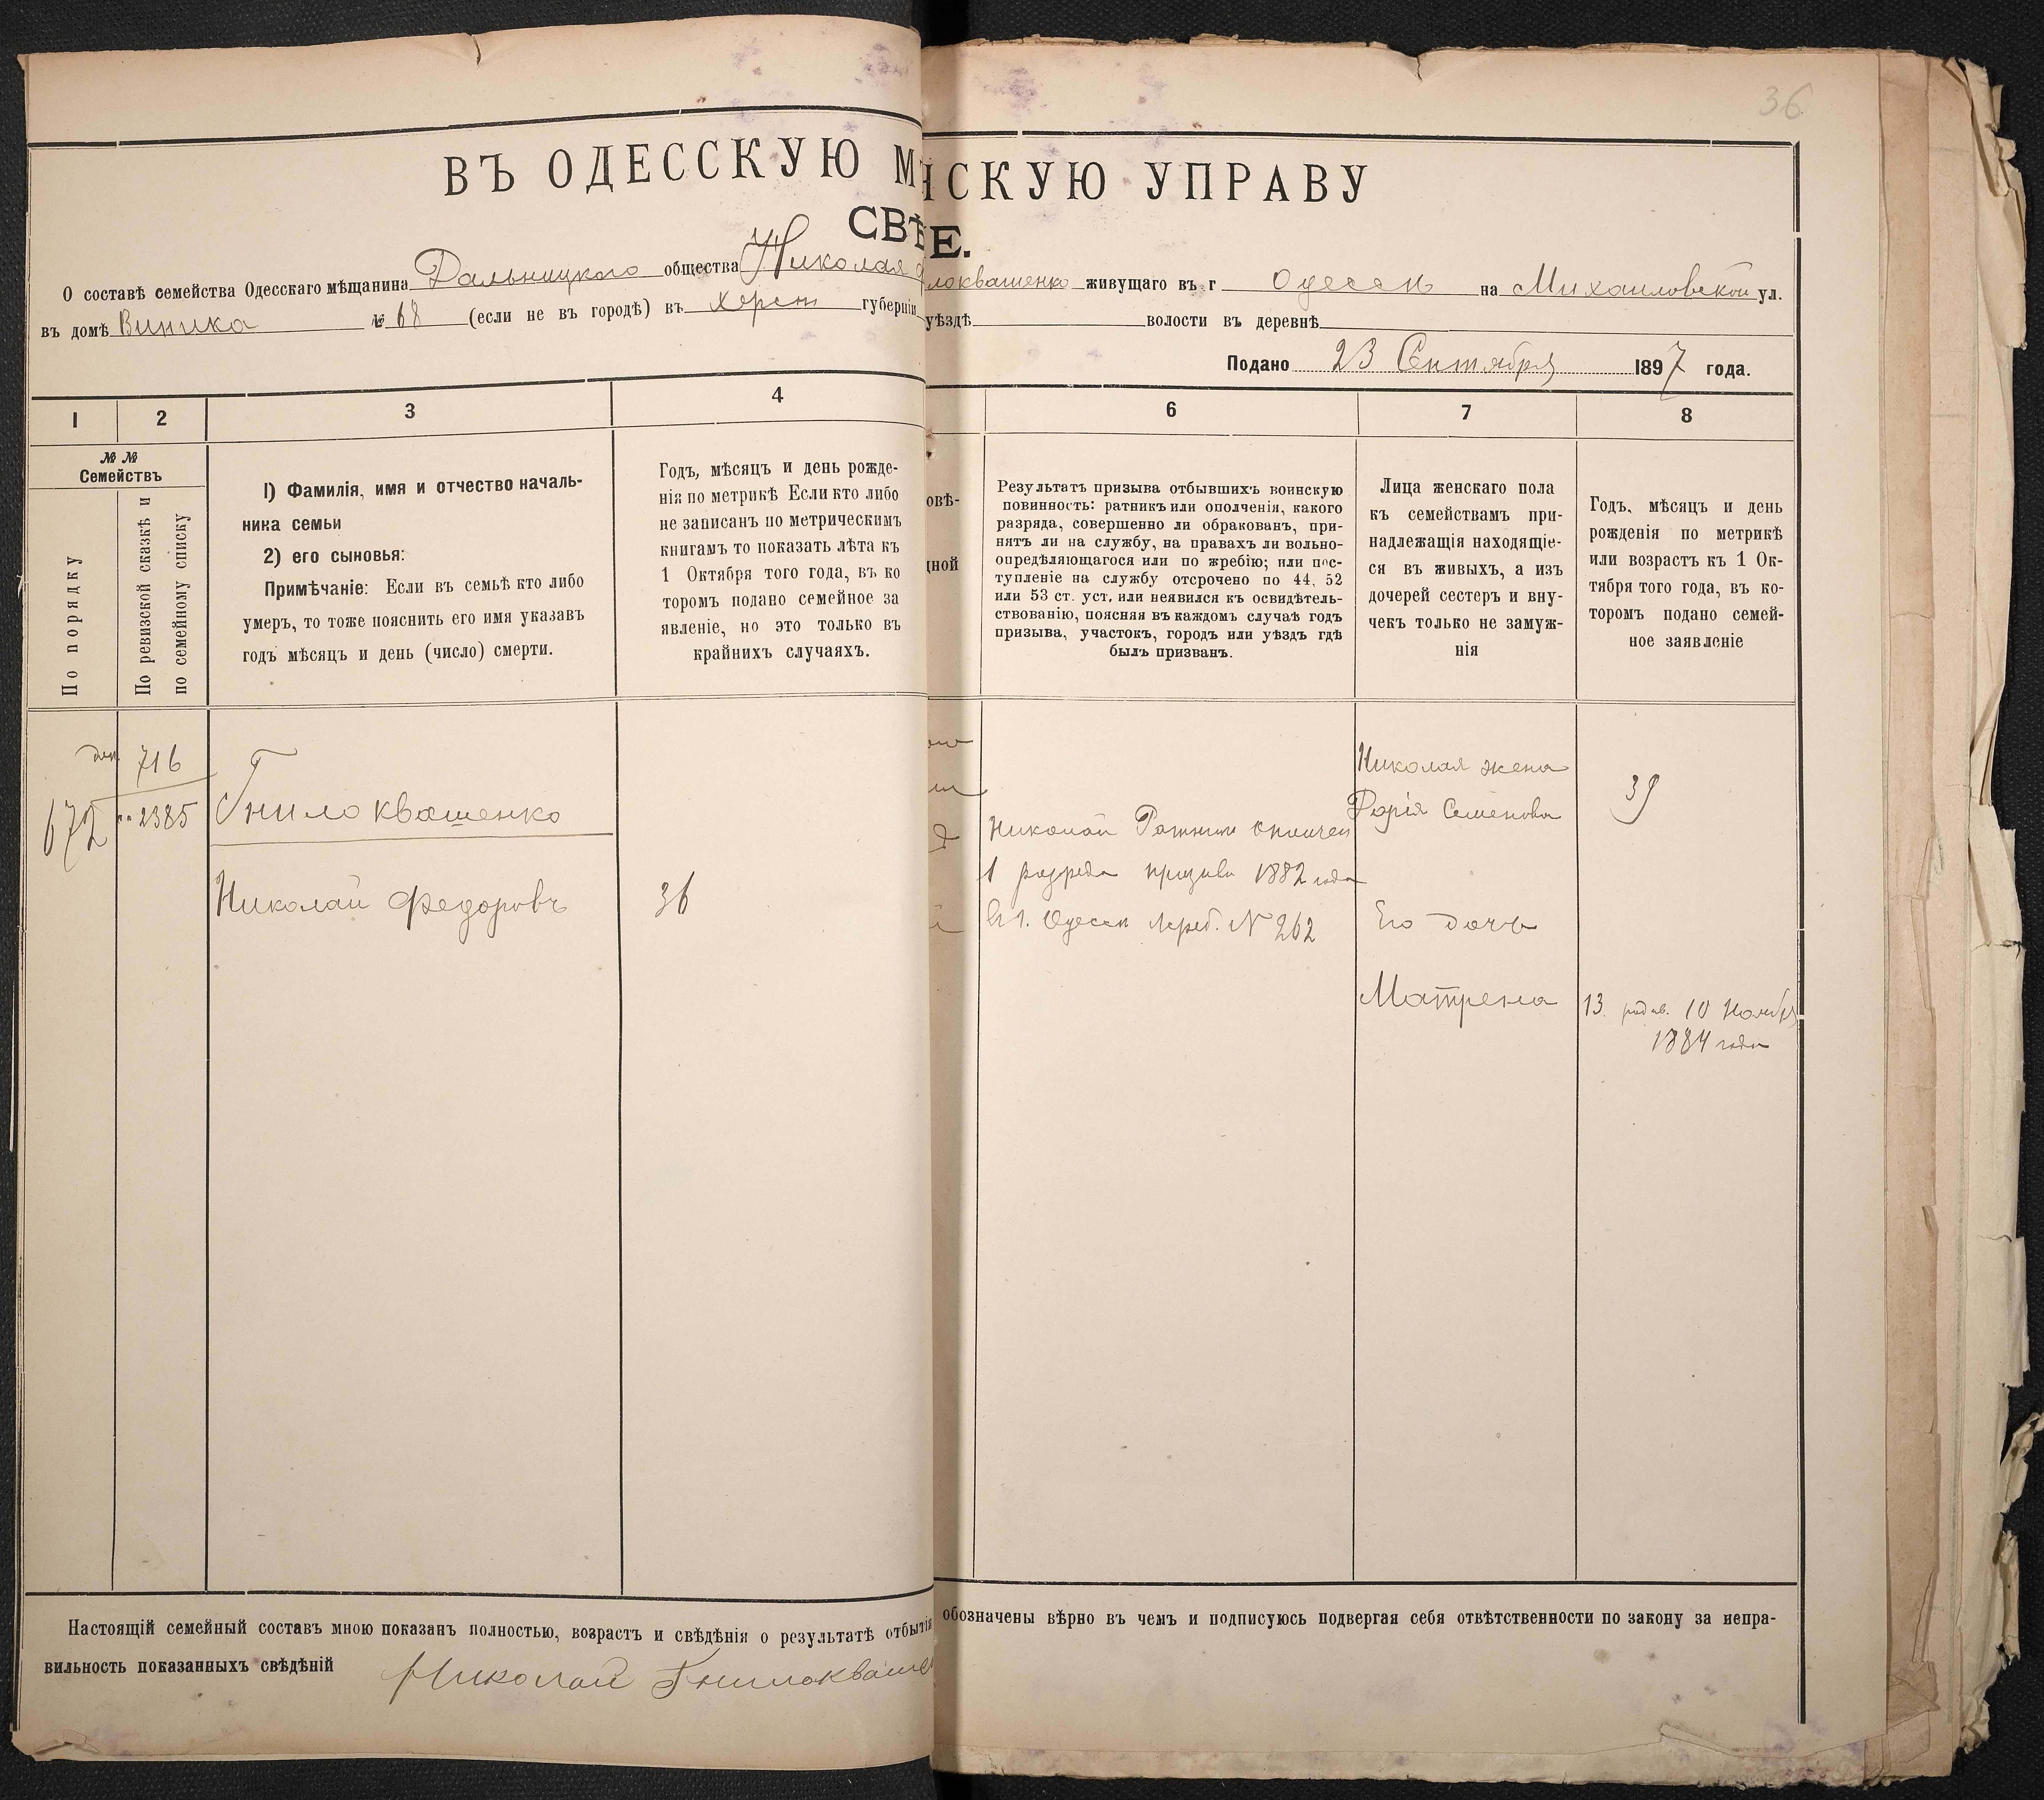 36
ВЪ ОДЕССКУЮ М НСКУЮ УПРАВУ
СВѢ Е.
О составѣ семейства Одесскаго мѣщанина Дальницкаго общества Николая локвашенко живущаго въ г Одессѣ на Михайловской ул.
въ домѣ Виника № 68 (если не въ городѣ) въ Херсон губерніи уѣздѣ волости въ деревнѣ
Подано 23 Сентября 1897 года.
1 2 3 4 6 7 8
№ №
Семействъ
По порядку
По ревизской сказкѣ и
по семейному списку
1) Фамилія, имя и отчество началь-
ника семьи
2) его сыновья:
Примѣчаніе: Если въ семьѣ кто либо
умеръ, то тоже пояснить его имя указавъ
годъ мѣсяцъ и день (число) смерти.
Годъ, мѣсяцъ и день рожде-
нія по метрикѣ Если кто либо
не записанъ по метрическимъ
книгамъ то показать лѣта къ
1 Октября того года, въ ко
торомъ подано семейное за
явленіе, но это только въ
крайнихъ случаяхъ.
овѣ-
дной
Результатъ призыва отбывшихъ воинскую
повинность: ратникъ или ополченія, какого
разряда, совершенно ли обракованъ, при-
нятъ ли на службу, на правахъ ли вольно-
опредѣляющагося или по жребію; или пос-
тупленіе на службу отсрочено по 44, 52
или 53 ст. уст. или неявился къ освидѣтель-
ствованію, поясняя въ каждомъ случаѣ годъ
призыва, участокъ, городъ или уѣздъ гдѣ
былъ призванъ.
Лица женскаго пола
къ семействамъ при-
надлежащія находящіе-
ся въ живыхъ, а изъ
дочерей сестеръ и вну-
чекъ только не замуж-
нія
Годъ, мѣсяцъ и день
рожденія по метрикѣ
или возрастъ къ 1 Ок-
тября того года, въ ко-
торомъ подано семей-
ное заявленіе
716
672 2385
Гнилоквашенко
Николай Федоровъ
36
Николай Ратник ополчен
1 разряда призыва 1882 года
въ г. Одессѣ Жреб. № 262
Николая жена
Дарія Семенова
39
Его дочь
Матрена
13 родив. 10 Ноября
1884 года
Настоящій семейный составъ мною показанъ полностью, возрастъ и свѣдѣнія о результатѣ отбытія обозначены вѣрно въ чемъ и подписуюсь подвергая себя отвѣтственности по закону за непра-
вильность показанныхъ свѣдѣній Николай Гнилокваше